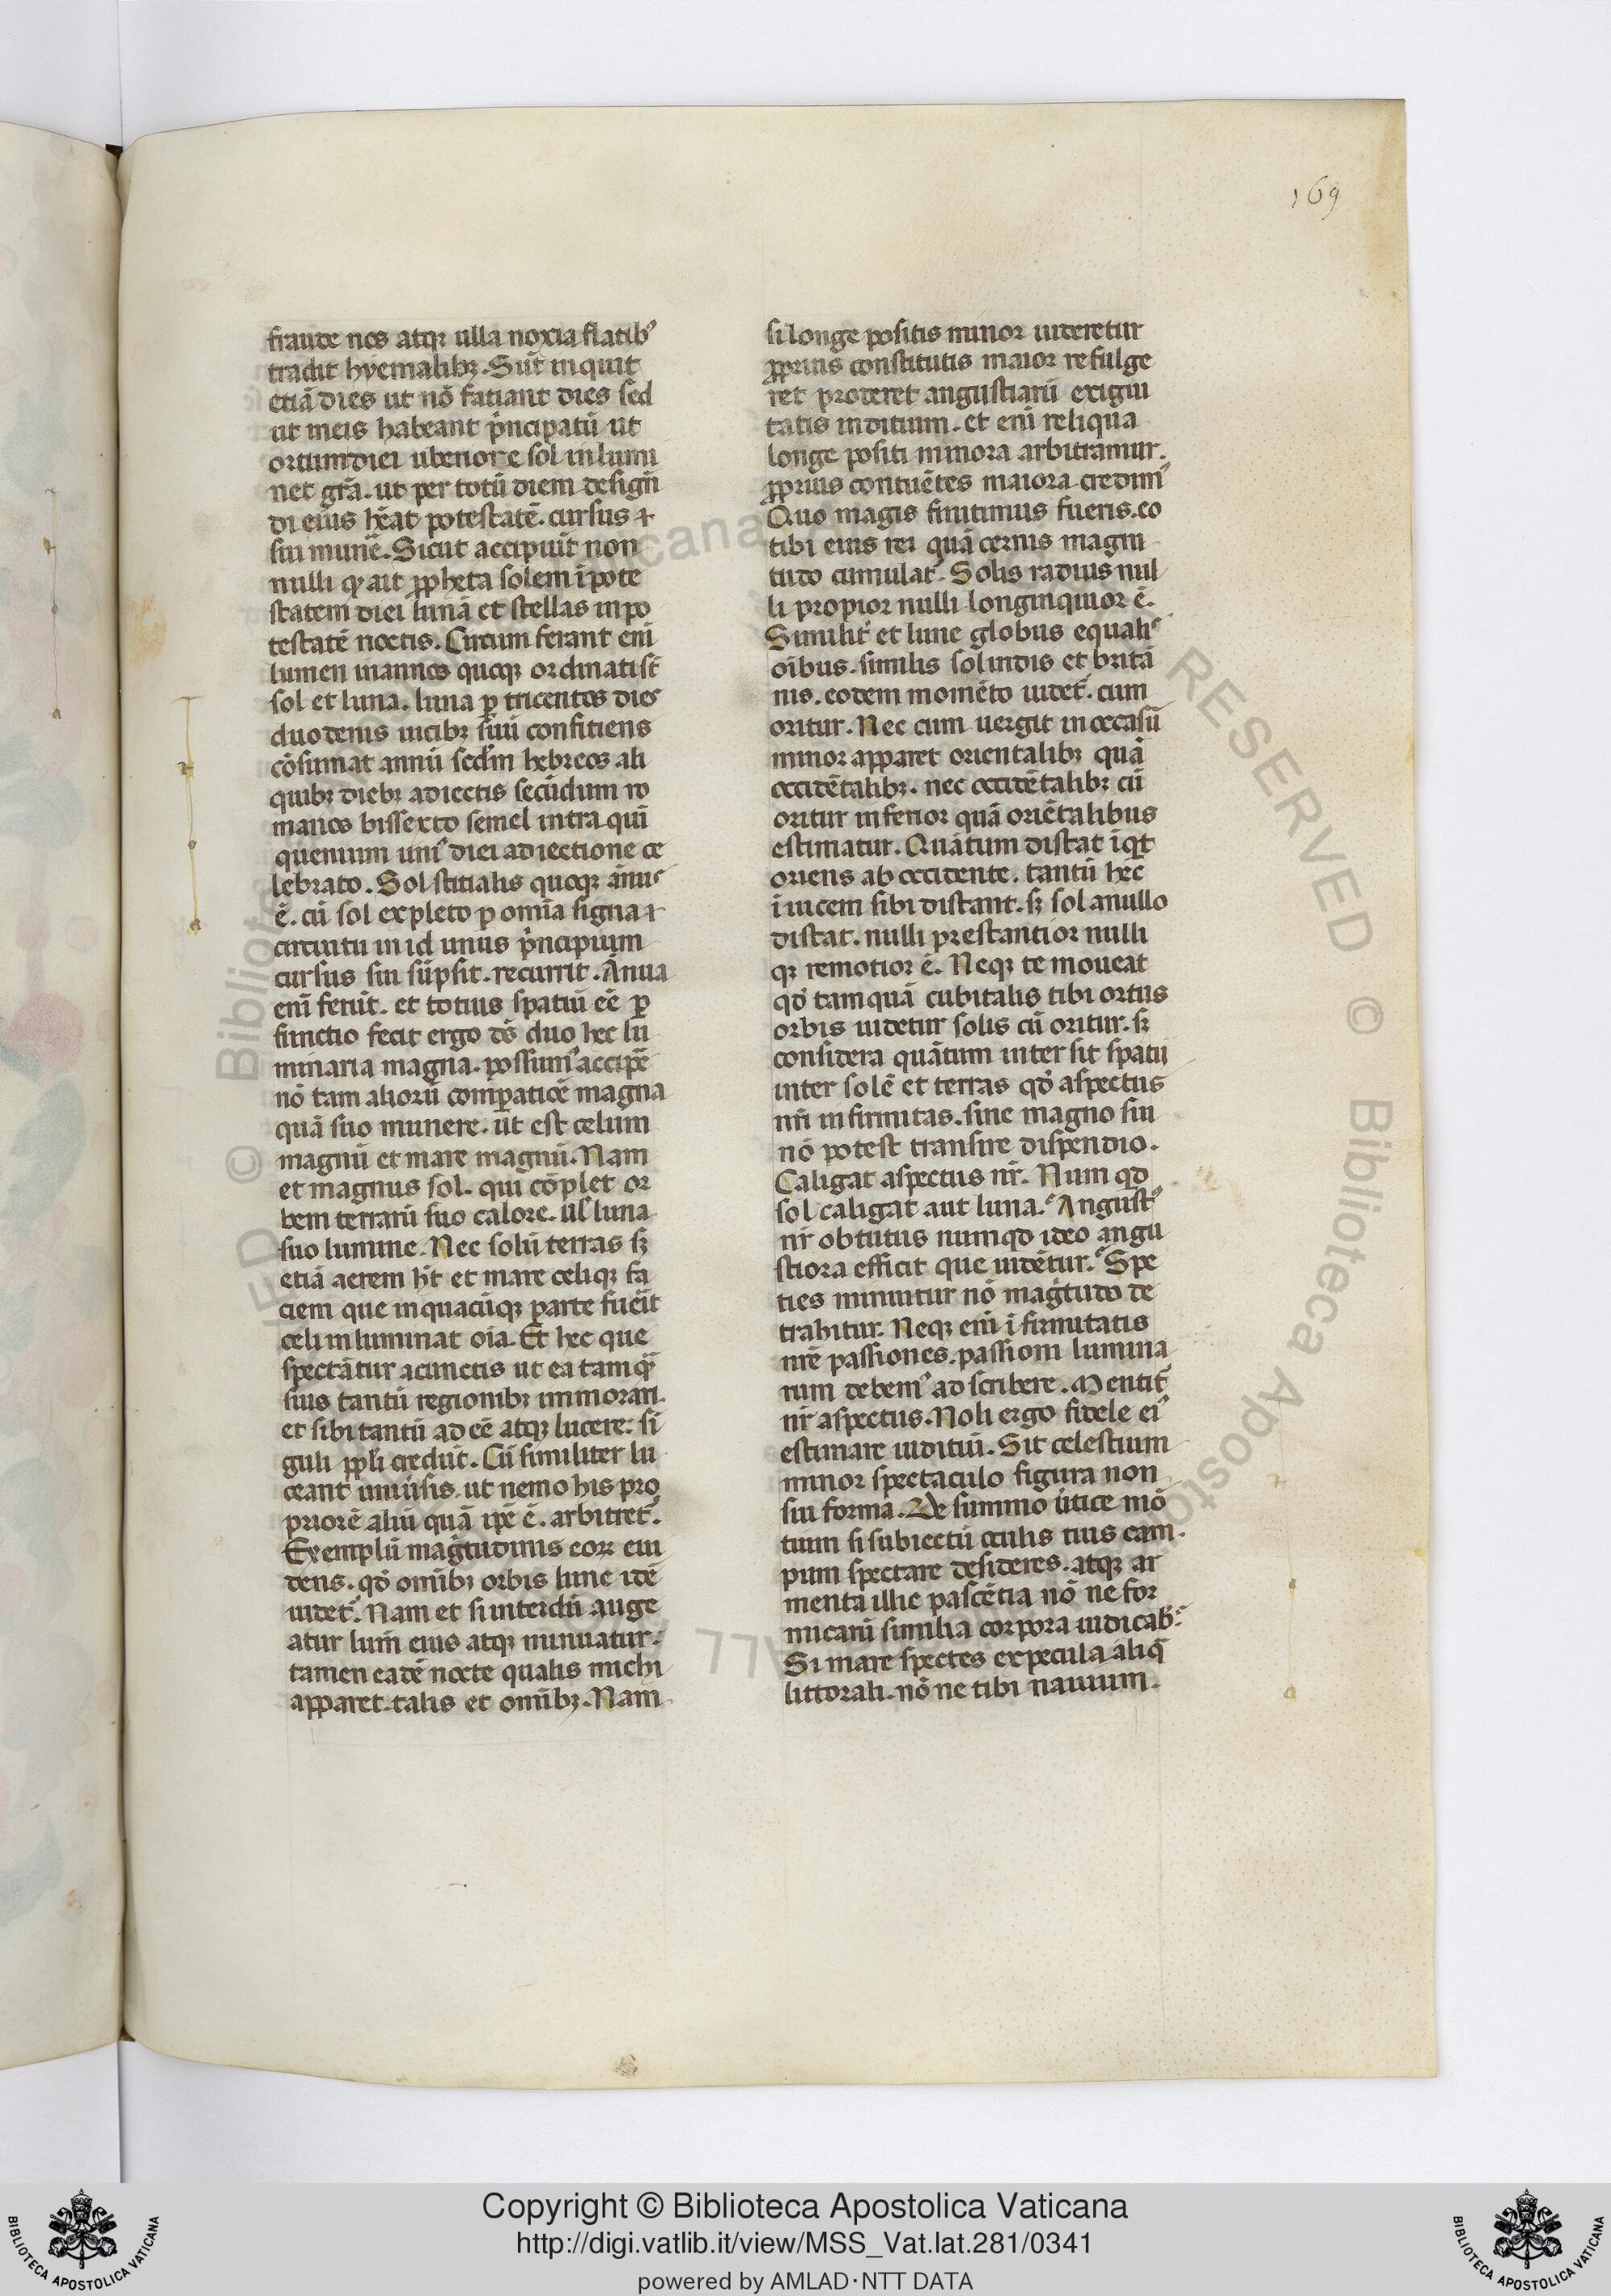 169
fraude nos atqꝫ ulla noxia flatibꝰ
tradit hyemalibꝫ. Sūt inquit
etiā dies ut nō fatiant dies sed
ut meis habeant p̓ncipatū ut
ortum diei uberiore sol inlumi
net gr̄a. ut per totū diem desigñ
di eius hēat potestatē. cursus ⁊
sui mun̄e. Sicut accipiūt non
nulli ꝙ ait ꝓpheta solem ī pote
statem diei lunā et stellas in po
testatē noctis. Circum ferant eni
lumen in annos quoqꝫ ordinati st̄
sol et luna. luna ꝑ tricentos dies
duodenis uicibꝫ sūi confitiens
cōsumat annū scd̄m hebreos ali
quibꝫ diebꝫ adiectis secūdum ro
manos bissexto semel intra quī
quenium uniꝰ diei adiectione ce
lebrato. Solstitialis quoqꝫ ānus
ē. cū sol expleto ꝑ omīa signa ⁊
circuitu in id unus p̓ncipium
cursus sui sūpsit. recurrit. Ānua
enī feriūt. et totius spatiū eē ꝑ
functio fecit ergo dꝰ duo hec lu
minaria magna. possumꝰ accipē
nō tam aliorū comꝑaticē magna
quā suo munere. ut est celum
magnū et mare magnū. Nam
et magnus sol. qui cōplet or
bem terrarū suo calore. ul̓ luna
suo lumine. Nec solū terras sꝫ
etiā aerem h̄t et mare celiqꝫ fa
ciem que in quacūqꝫ parte fuēit
celi inluminat oīa. Et hec que
spectātur a cunctis ut ea tamqꝫ
suis tantū regionibꝫ immorari.
et sibi tantū ad eē atqꝫ lucere: si
guli ppl̓i credūt. Cū similiter lu
ceant uniūsis. ut nemo his pro
priorē aliū quā ip̄e ē. arbitret̓.
Exemplū mag̓tudinis eoꝝ eui
dens. qd̓ omībꝫ orbis lune idē
uidet̓. Nam et si interdū auge
atur lum̄ eius atqꝫ minuatur:
tamen eadē nocte qualis michi
apparet. talis et omībꝫ. Nam
si longe positis minor uideretur
ꝓprius constitutis maior refulge
ret proderet angustiarū exigui
tatis inditium. et eni reliqua
longe positi minora arbitramur.
ꝓprius contuētes maiora credimꝰ
Quo magis finitimus fueris. eo
tibi eius rei quā cernis magni
tudo cumulat̓. Solis radius nul
li propior nulli longinquior ē.
Similit̓ et lune globus equalis
oībus. similis sol indis et britā
nis. eodem momēto uidet̓. cum
oritur. Nec cum uergit in occasū
minor apparet orientalibꝫ quā
occidētalibꝫ. nec occidētalibꝫ cū
oritur inferior quā oriētalibus
estimatur. Quātum distat īqt̓
oriens ab occidente. tantū hec
i uicem sibi distant. sꝫ sol a nullo
distat. nulli prestantior nulli
qꝫ remotior ē. Neqꝫ te moueat
qd̓ tamquā cubitalis tibi ortus
orbis uidetur solis cū oritur. sꝫ
considera quātum inter sit spatii
inter solē et terras qd̓ aspectus
nr̄i infirmitas. sine magno sui
nō potest transire dispendio.
Caligat aspectus nr̄. Num qd
sol caligat aut luna. Angustꝰ
nr̄ obtutus numqd ideo angu
stiora efficit que uidētur. Spe
ties minuitur nō mag̓tudo de
trahitur. Neqꝫ eni ī firmitatis
nr̄ē passiones. passioni lumina
rum debemꝰ ad scribere. Mentit̓
nr̄ aspectus. Noli ergo fidele eiꝰ
estimare iuditiū. Sit celestium
minor spectaculo figura non
sui forma. De summo u̓tice mō
tium si subiectū oculis tuis cam
pum spectare desideres. atqꝫ ar
menta illic pascētia nō ne for
micarū similia corpora iudicab̓:
Si mare spectes ex pecula aliq̄
littorali. nō ne tibi nauium.
Copyright © Biblioteca Apostolica Vaticana
http://digi.vatlib.it/view/MSS_Vat.lat.281/0341
powered by AMLAD·NTT DATA
BIBLIOTECA APOSTOLICA VATICANA
BIBLIOTECA APOSTOLICA VATICANA